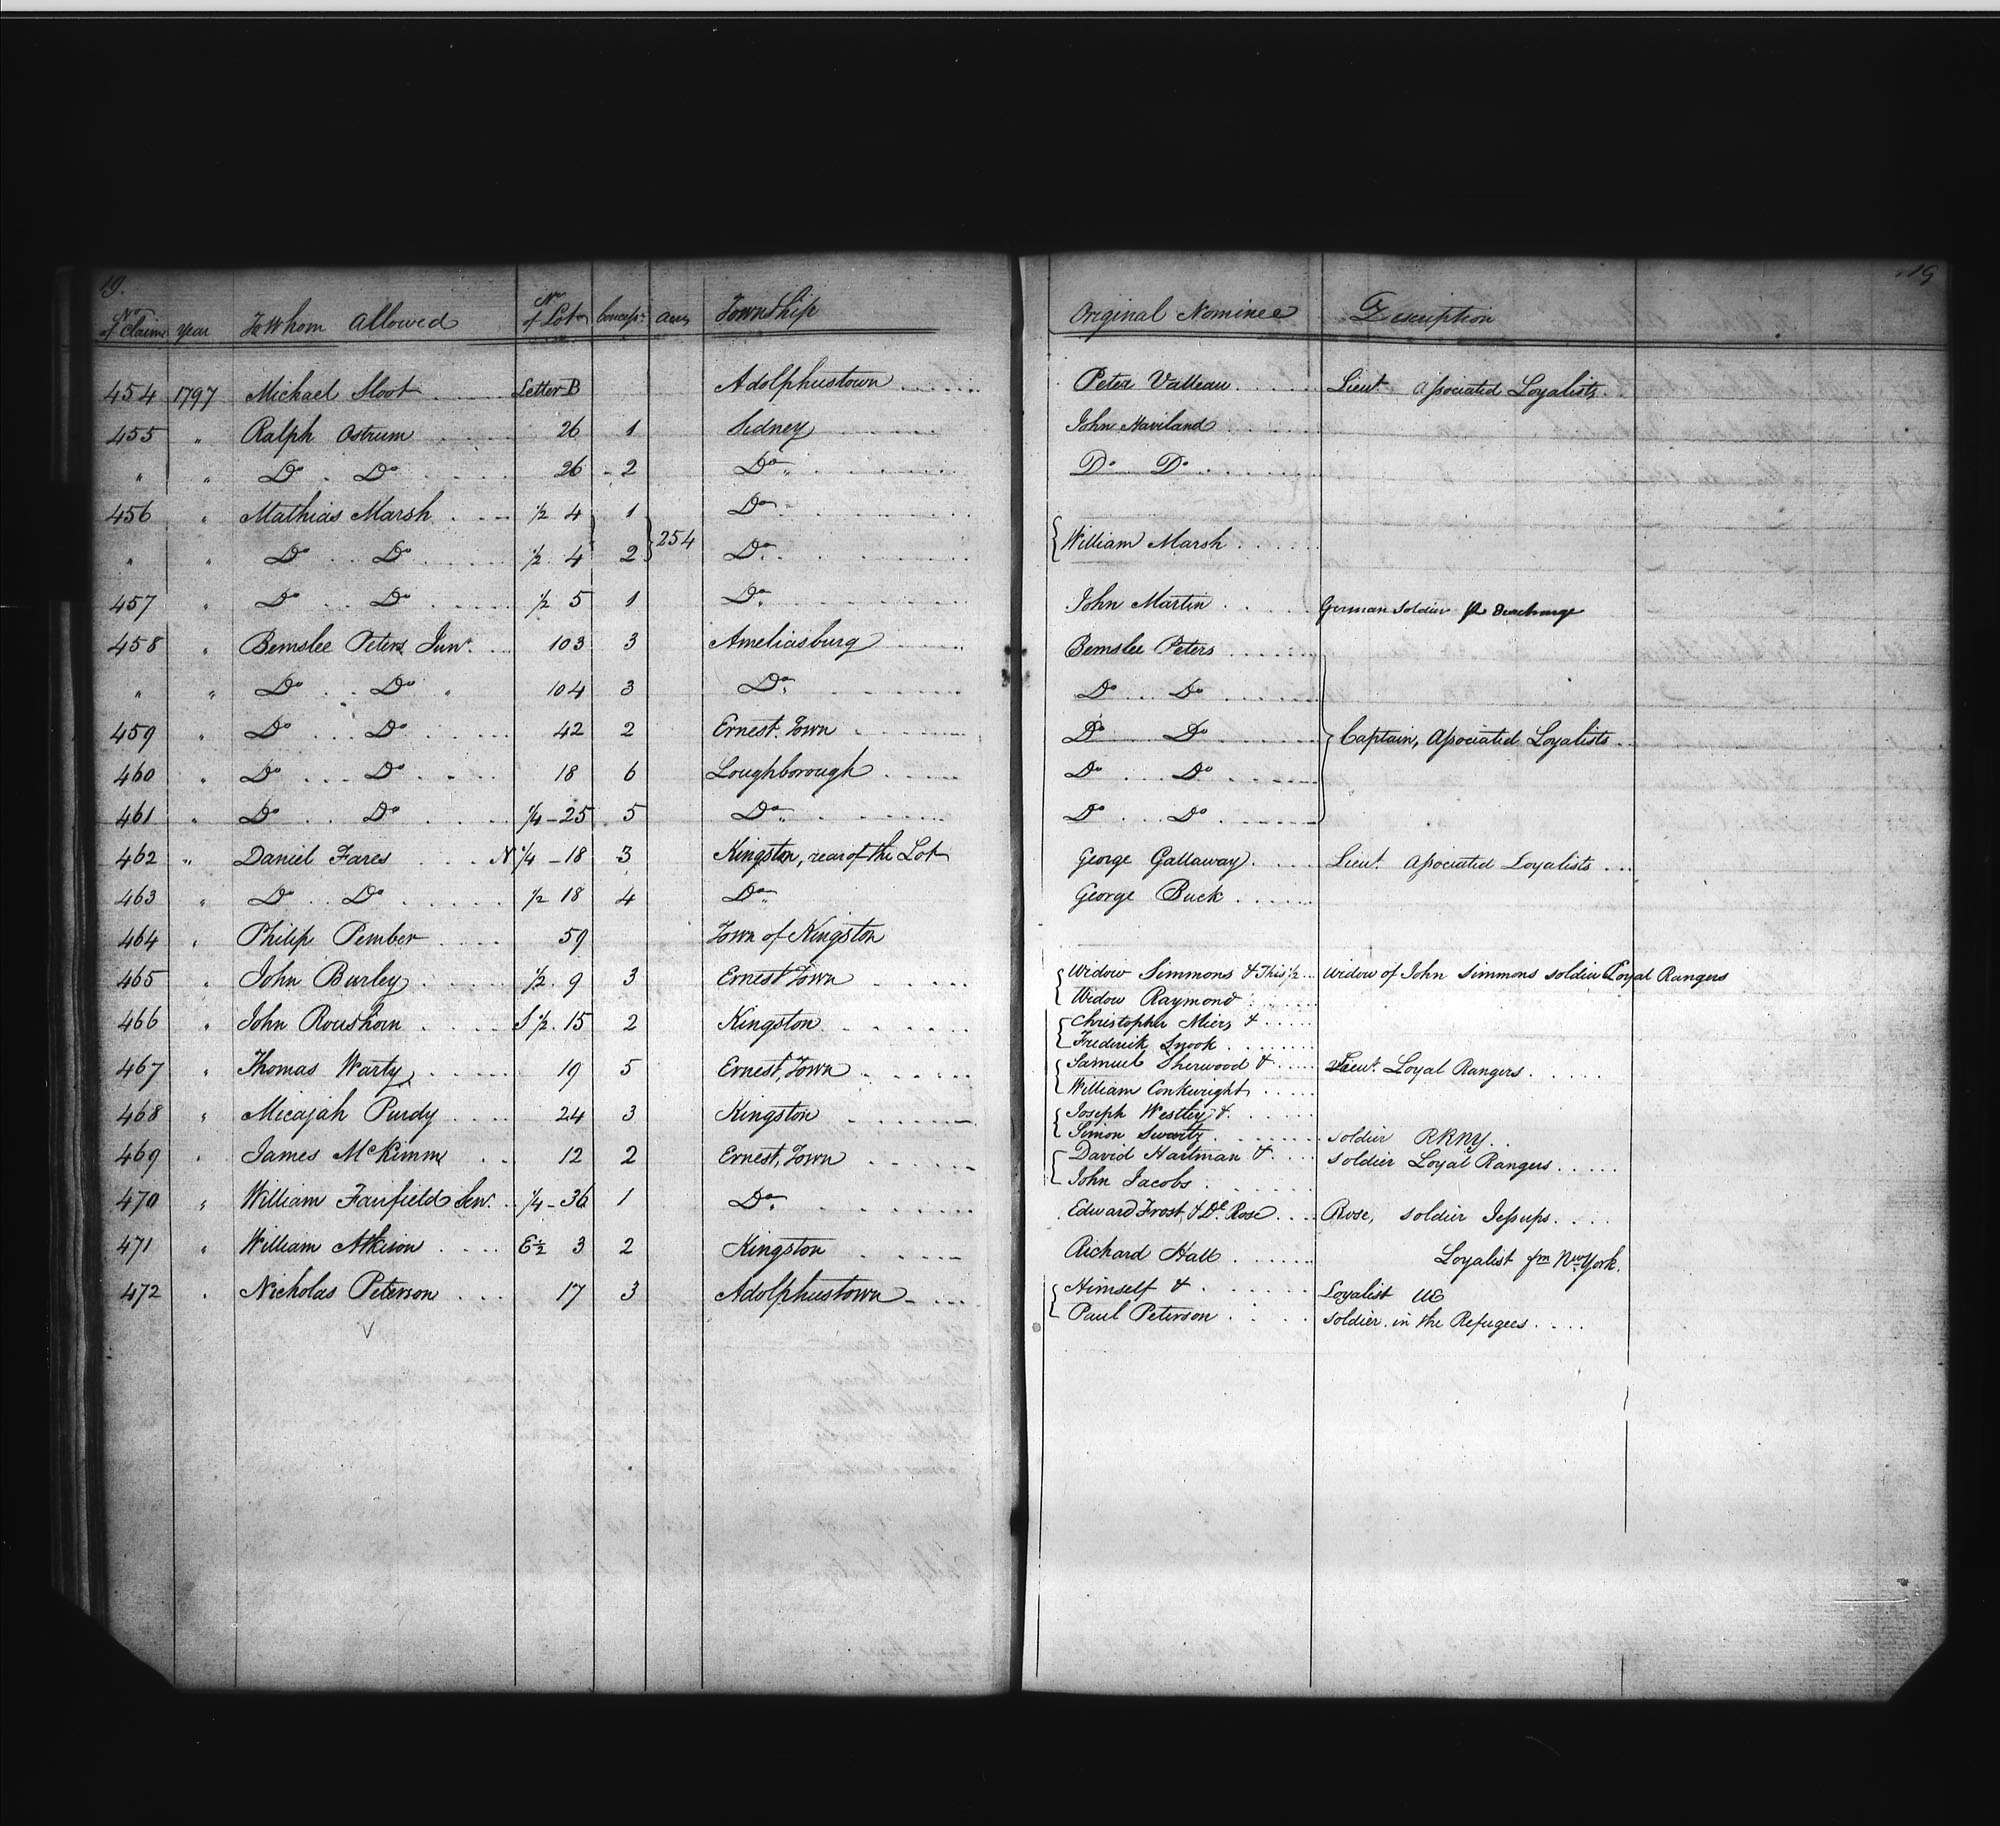 19.
19
No of Claim Year To Whom Allowed No of Lot Concessn Acres Township Original Nominee Description
454 1797 Michael Sloot Letter B Adolphustown Peter Valleau Lieut. Associated Loyalists
455 " Ralph Ostrum 26 1 Sidney John Haviland
" " Do Do 26 2 Do Do Do
456 " Mathias Marsh 1/2 4 1 Do
254 William Marsh
" " Do Do 1/2 4 2 Do
457 " Do Do 1/2 5 1 Do John Martin German Soldier pr Discharge
458 " Bemslee Peters Junr. 103 3 Ameliasburg Bemslee Peters
" " Do Do " 104 3 Do Do Do
459 " Do Do 42 2 Ernest Town Do Do Captain, Associated Loyalists
460 " Do Do 18 6 Loughborough Do Do
461 " Do Do 1/4 - 25 5 Do Do Do
462 " Daniel Fares N 1/4 - 18 3 Kingston, rear of the Lot George Gallaway Lieut. Associated Loyalists
463 " Do Do 1/2 18 4 Do George Buck
464 " Philip Pember 59 Town of Kingston
465 " John Burley 1/2 9 3 Ernest Town Widow Simmons & This 1/2 Widow of John Simmons Soldier Loyal Rangers
Widow Raymond
466 " John Roushorn S 1/2 15 2 Kingston Christopher Miers &
Frederick Snook
467 " Thomas Warty 19 5 Ernest Town Samuel Sherwood & Lieut. Loyal Rangers
William Conkwright
468 " Micajah Purdy 24 3 Kingston Joseph Westley &
Simon Swartz Soldier RRNY
469 " James McKimm 12 2 Ernest Town David Hartman & Soldier Loyal Rangers
John Jacobs
470 " William Fairfield Senr. 1/4 - 36 1 Do Edward Frost & Dl. Rose Rose, Soldier Jessups
471 " William Atkison E 1/2 3 2 Kingston Richard Hall Loyalist fm New York.
472 " Nicholas Peterson 17 3 Adolphustown Himself & Loyalist UE
Paul Peterson Soldier in the Refugees